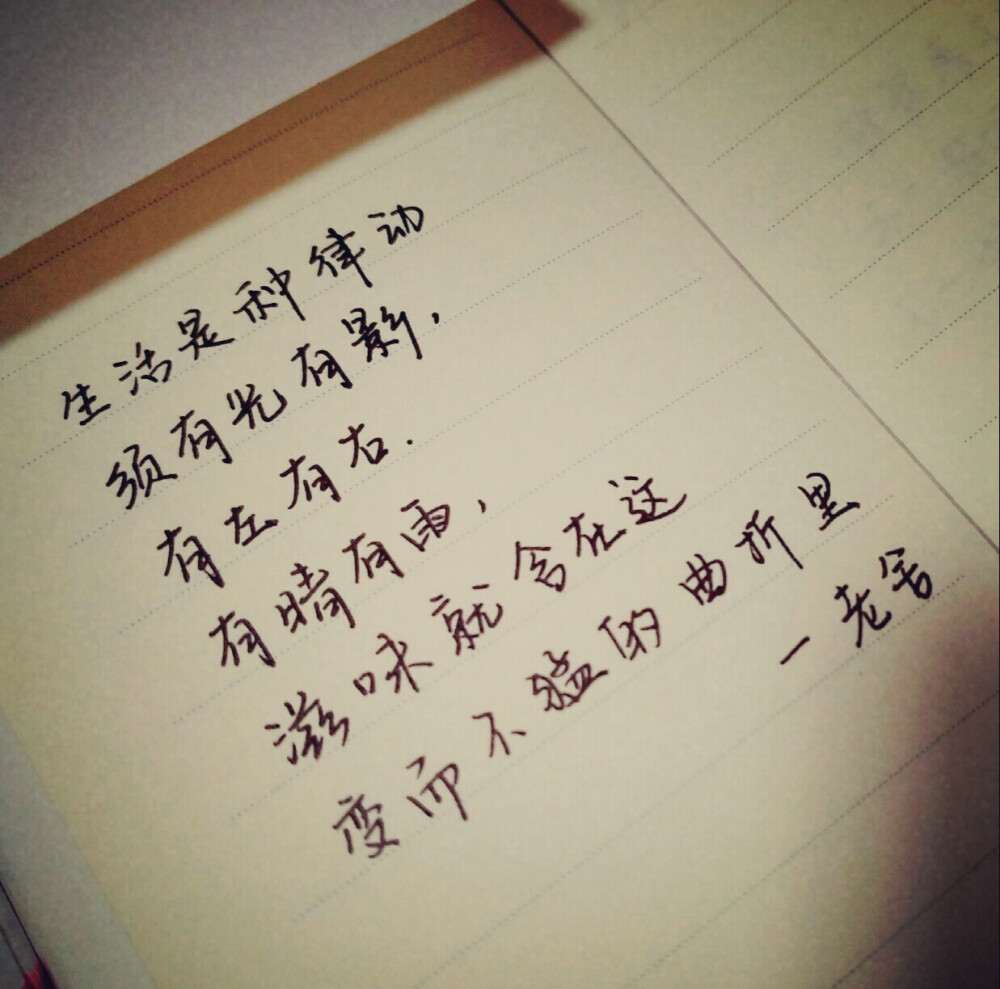 生活是种律动
须有光有影,
有左有右.
有晴有雨,
滋味就含在这
变而不猛的曲折里
一老舍